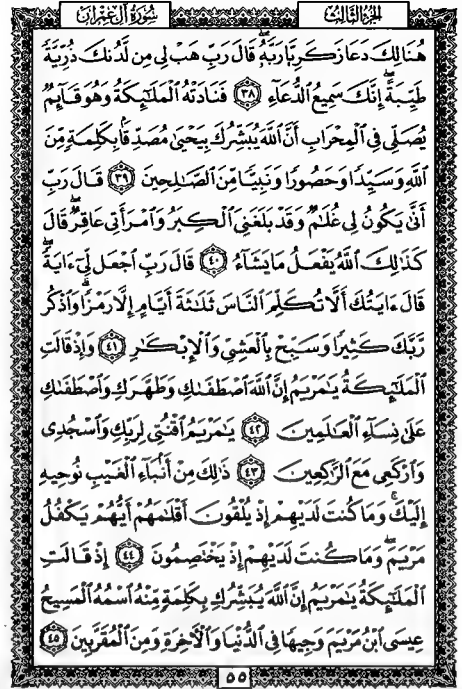 سُورَةُ آلِ عِمْرَانَ الجزء الثالث
هُنَالِكَ دَعَا زَكَرِيَّا رَبَّهُۥۖ قَالَ رَبِّ هَبْ لِى مِن لَّدُنكَ ذُرِّيَّةً
طَيِّبَةًۖ إِنَّكَ سَمِيعُ ٱلدُّعَآءِ ٣٨ فَنَادَتْهُ ٱلْمَلَٰٓئِكَةُ وَهُوَ قَآئِمٌ
يُصَلِّى فِى ٱلْمِحْرَابِ أَنَّ ٱللَّهَ يُبَشِّرُكَ بِيَحْيَىٰ مُصَدِّقًۢا بِكَلِمَةٍ مِّنَ
ٱللَّهِ وَسَيِّدًا وَحَصُورًا وَنَبِيًّا مِّنَ ٱلصَّٰلِحِينَ ٣٩ قَالَ رَبِّ
أَنَّىٰ يَكُونُ لِى غُلَٰمٌ وَقَدْ بَلَغَنِىَ ٱلْكِبَرُ وَٱمْرَأَتِى عَاقِرٌۖ قَالَ
كَذَٰلِكَ ٱللَّهُ يَفْعَلُ مَا يَشَآءُ ٤٠ قَالَ رَبِّ ٱجْعَل لِّىٓ ءَايَةًۖ
قَالَ ءَايَتُكَ أَلَّا تُكَلِّمَ ٱلنَّاسَ ثَلَٰثَةَ أَيَّامٍ إِلَّا رَمْزًاۗ وَٱذْكُر
رَّبَّكَ كَثِيرًا وَسَبِّحْ بِٱلْعَشِىِّ وَٱلْإِبْكَٰرِ ٤١ وَإِذْ قَالَتِ
ٱلْمَلَٰٓئِكَةُ يَٰمَرْيَمُ إِنَّ ٱللَّهَ ٱصْطَفَىٰكِ وَطَهَّرَكِ وَٱصْطَفَىٰكِ
عَلَىٰ نِسَآءِ ٱلْعَٰلَمِينَ ٤٢ يَٰمَرْيَمُ ٱقْنُتِى لِرَبِّكِ وَٱسْجُدِى
وَٱرْكَعِى مَعَ ٱلرَّٰكِعِينَ ٤٣ ذَٰلِكَ مِنْ أَنۢبَآءِ ٱلْغَيْبِ نُوحِيهِ
إِلَيْكَۚ وَمَا كُنتَ لَدَيْهِمْ إِذْ يُلْقُونَ أَقْلَٰمَهُمْ أَيُّهُمْ يَكْفُلُ
مَرْيَمَ وَمَا كُنتَ لَدَيْهِمْ إِذْ يَخْتَصِمُونَ ٤٤ إِذْ قَالَتِ
ٱلْمَلَٰٓئِكَةُ يَٰمَرْيَمُ إِنَّ ٱللَّهَ يُبَشِّرُكِ بِكَلِمَةٍ مِّنْهُ ٱسْمُهُ ٱلْمَسِيحُ
عِيسَى ٱبْنُ مَرْيَمَ وَجِيهًا فِى ٱلدُّنْيَا وَٱلْءَاخِرَةِ وَمِنَ ٱلْمُقَرَّبِينَ ٤٥
٥٥